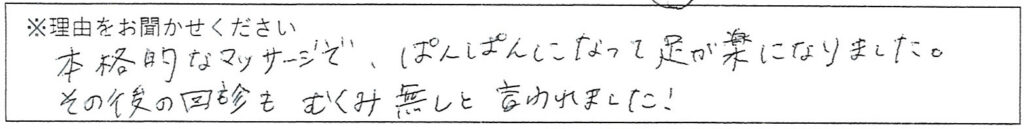 ※理由をお聞かせください
本格的なマッサージで、ぱんぱんになって足が楽になりました。
その後の回診も むくみ無しと言われました!